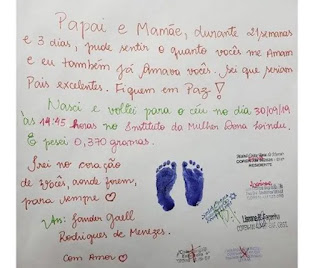 Papai e Mamãe, durante 21 semanas
e 3 dias, pude sentir o quanto vocês me Amam
e eu também já Amava vocês. Sei que seriam
Pais excelentes. Fiquem em Paz!
Nasci e voltei para o céu no dia 30/09/19
às 19:45 horas no Instituto da Mulher Dona Lindu.
E pesei 0,370 gramas.
Irei no coração
de Vocês, aonde forem,
para sempre ♡
Ass: Jander Gaell
Rodrigues de Menezes.
Com Amor ♡
RESIDENTE